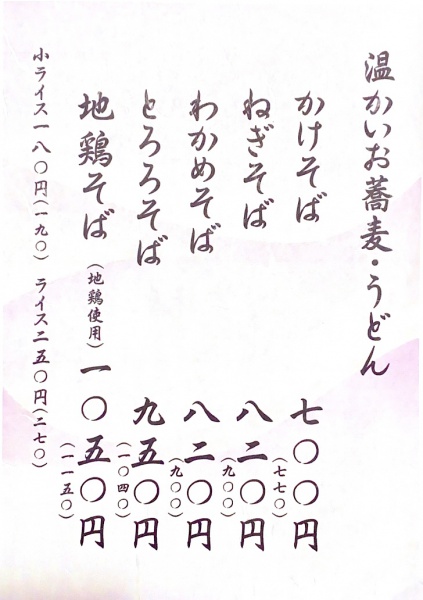 温かいお蕎麦・うどん
かけそば 七〇〇円
(七七〇)
ねぎそば 八二〇円
(九〇〇)
わかめそば 八二〇円
(九〇〇)
とろろそば 九五〇円
(一〇四〇)
地鶏そば (地鶏使用) 一〇五〇円
(一一五〇)
小ライス一八〇円(一九〇) ライス二五〇円(二七〇)